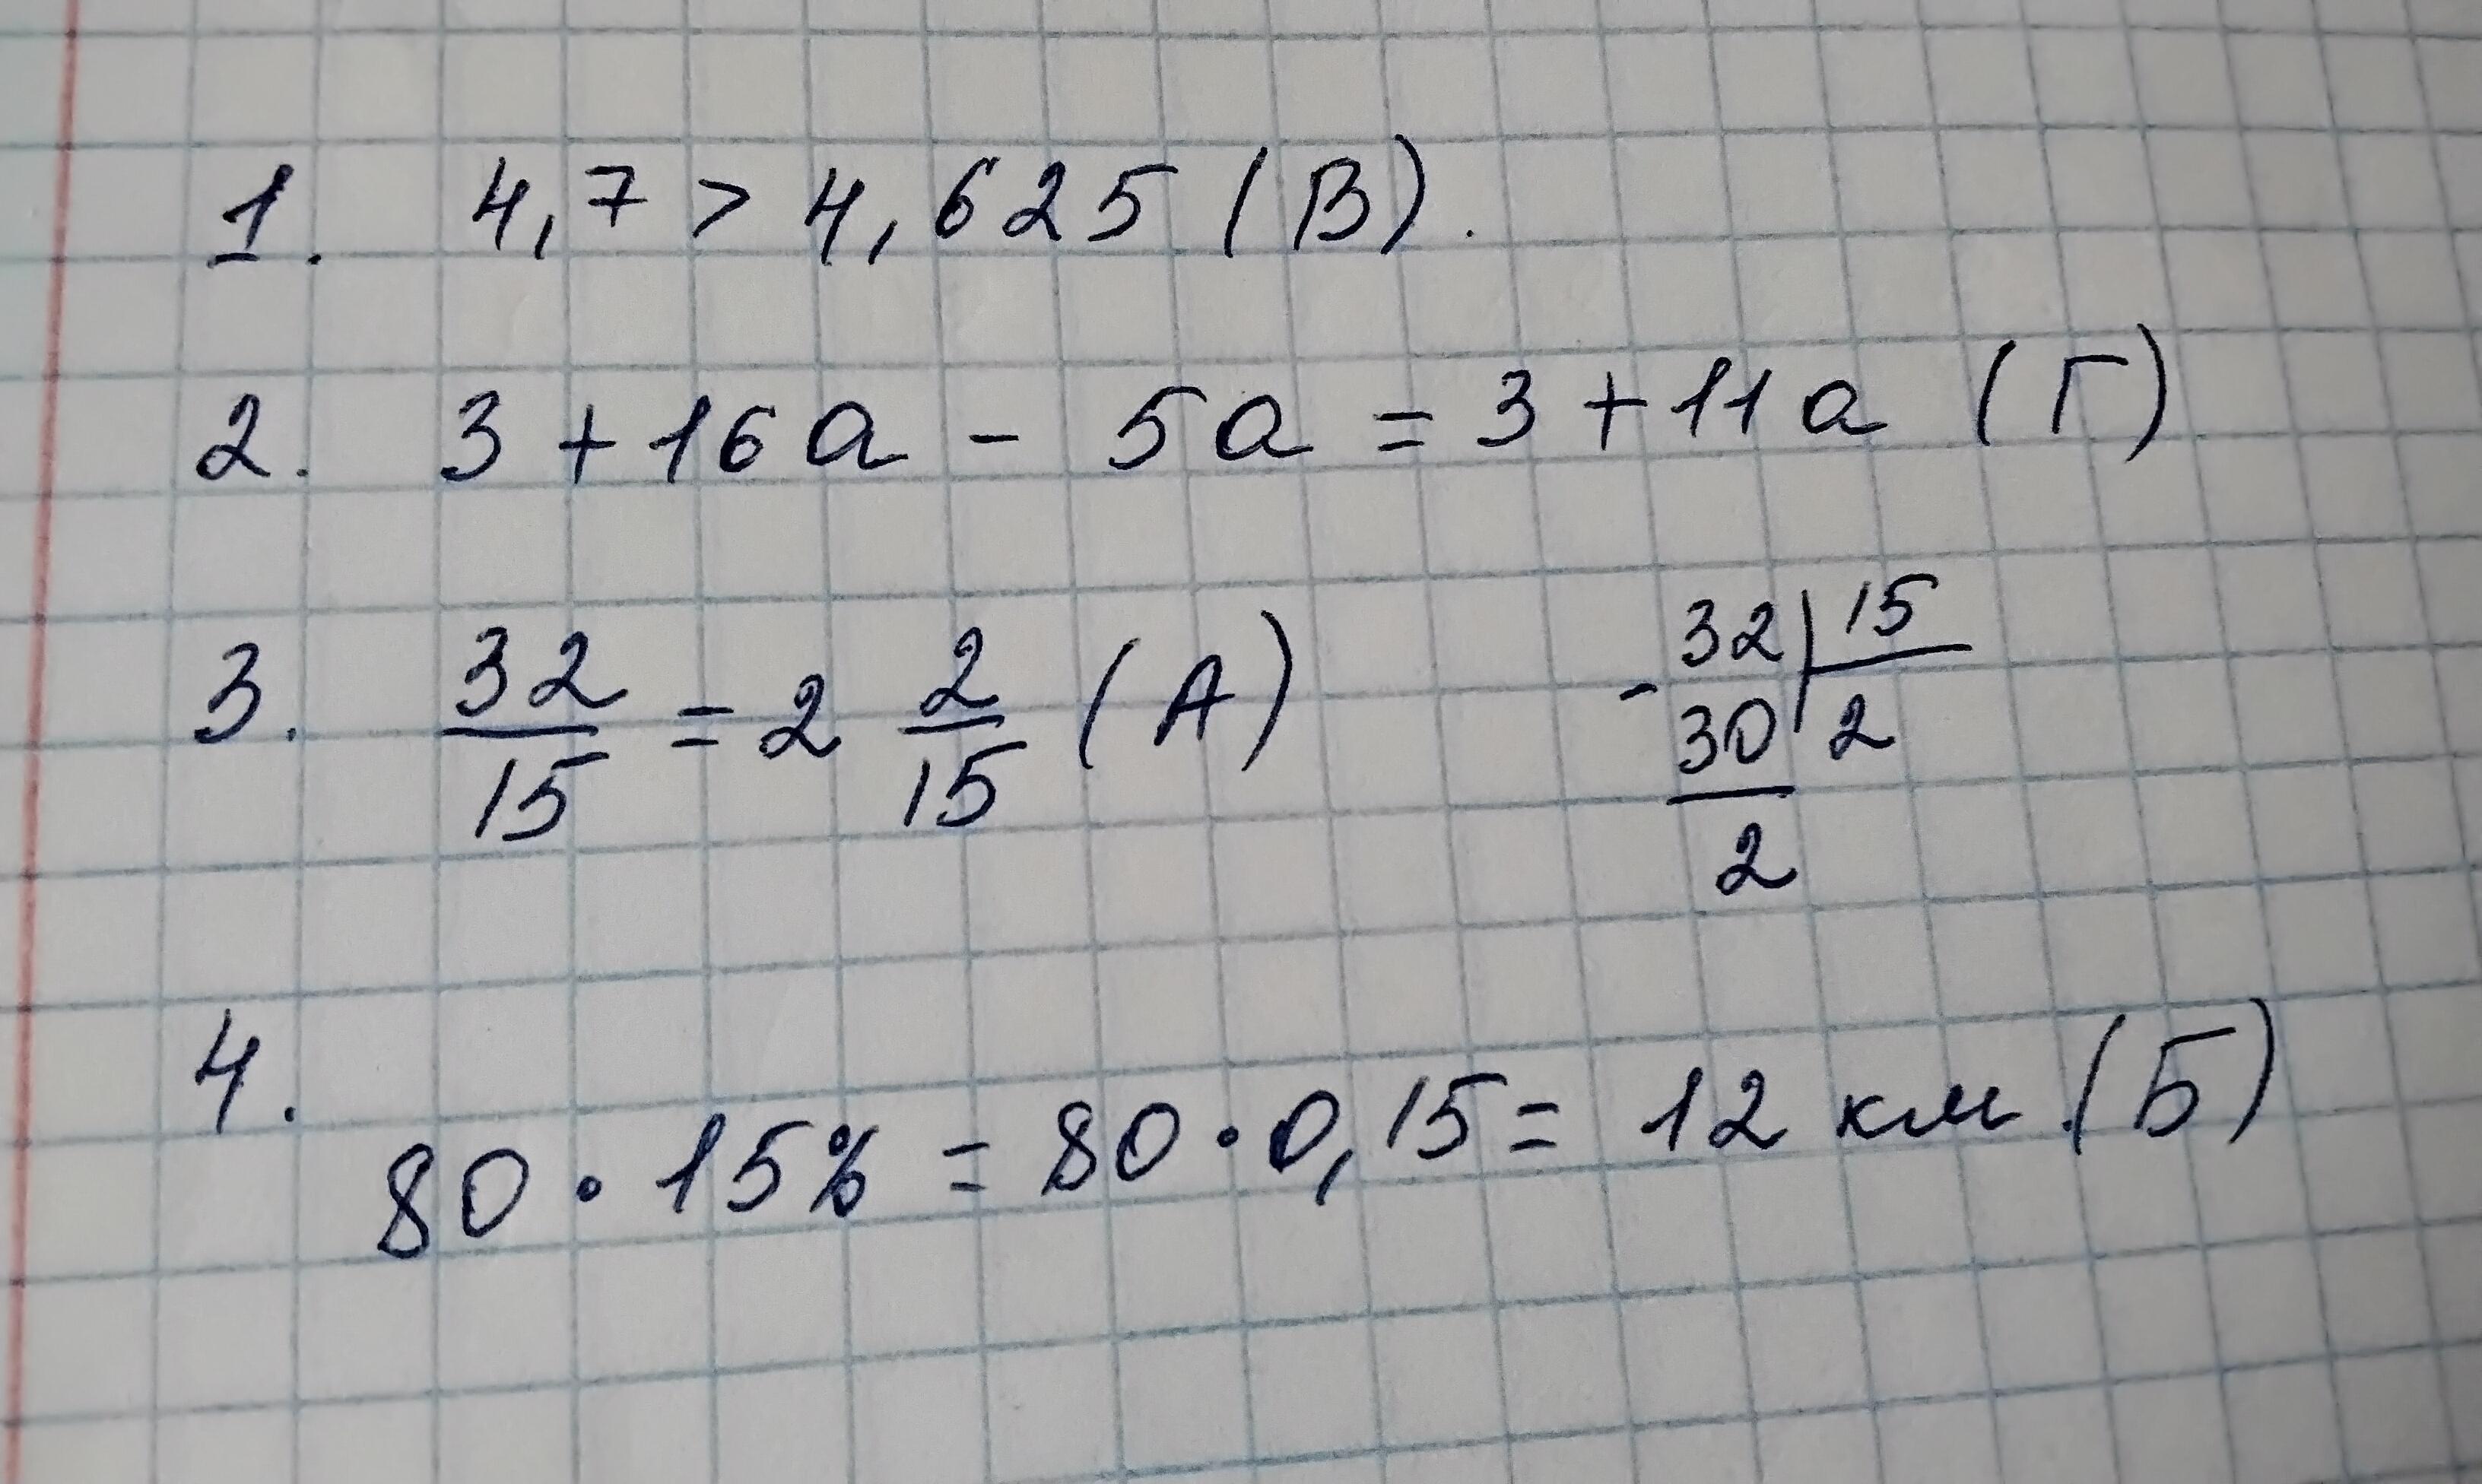 1. 4,7 > 4,625 (В).
2. 3 + 16a - 5a = 3 + 11a (Г)
3. 32/15 = 2 2/15 (А)
- 32 | 15
30 | 2
2
4.
80 · 15% = 80 · 0,15 = 12 км (Б)